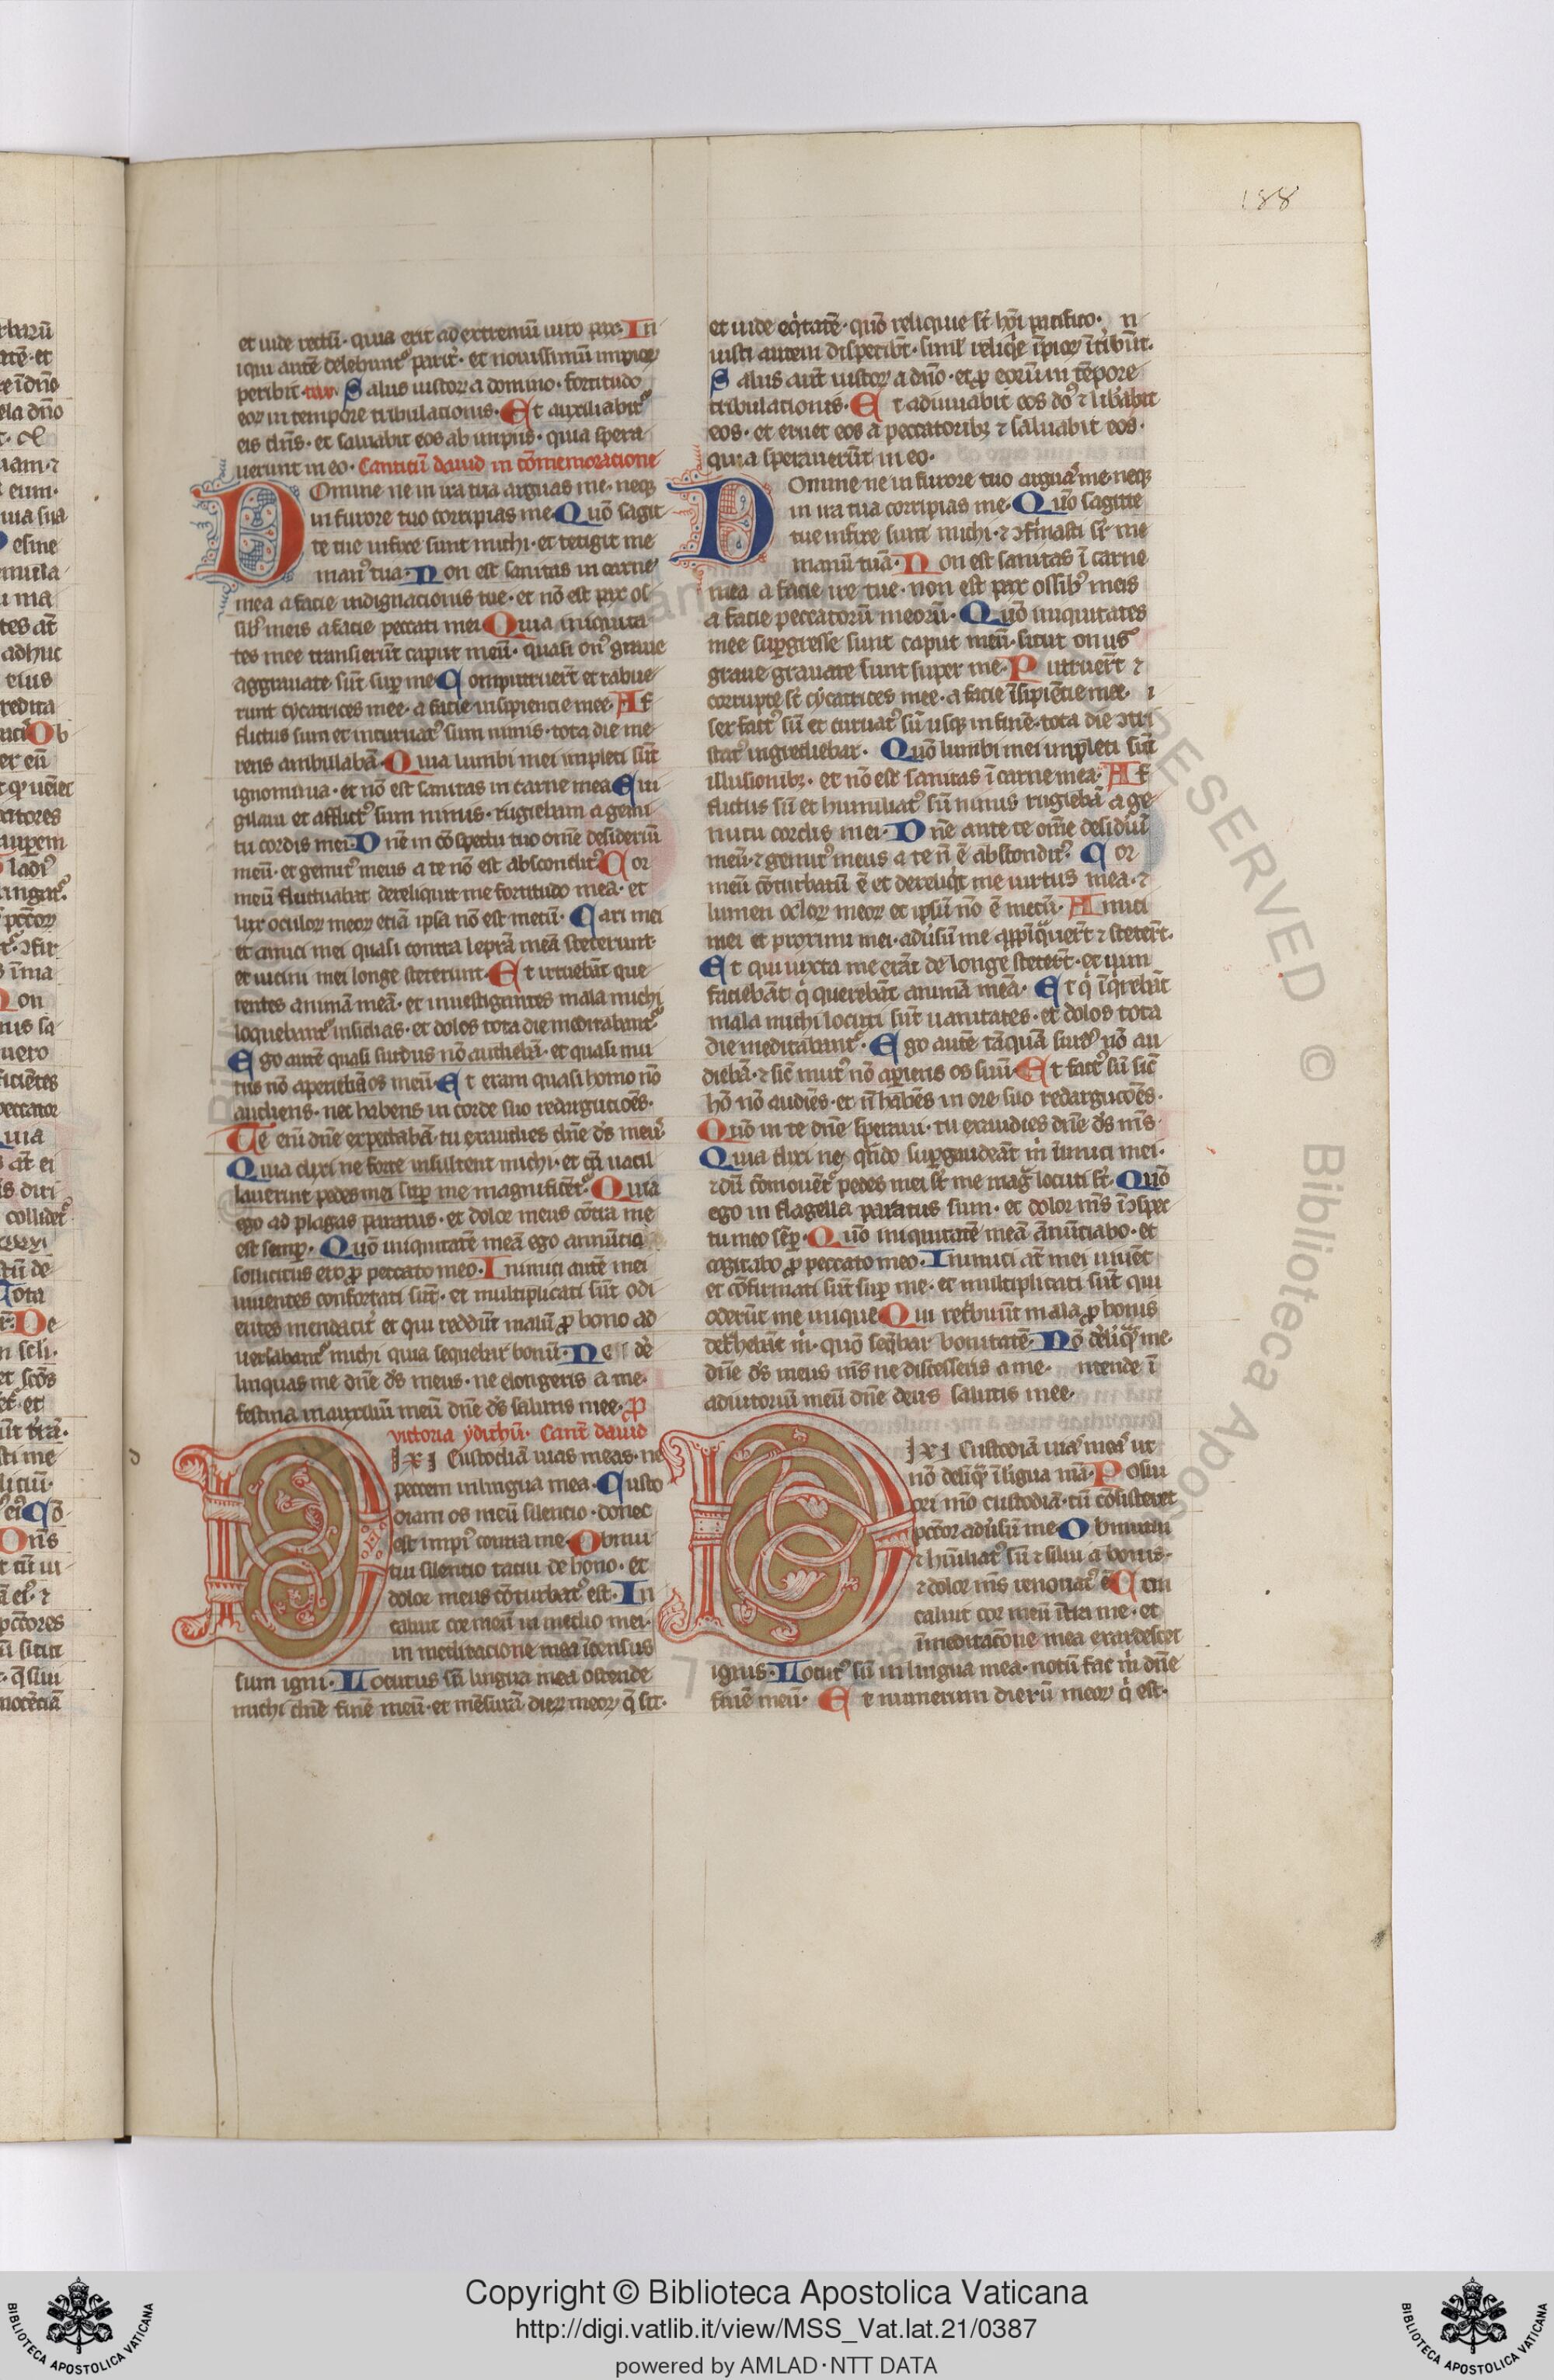 188
et uide rectū· quia erit ad extremū uiro pax· In
iqui autē delebunt᷒ parit᷒· et nouissimū impioꝝ
peribit· tav· Salus iustoꝝ a domino· fortitudo
eoꝝ in tempore tribulationis· Et auxiliabit᷒
eis dn̄s· et saluabit eos ab impiis· quia spera
uerunt in eo· Canticū dauid in cōmemoracione
Domine ne in ira tua arguas me· neqꝫ
in furore tuo corripias me· Quō sagit
te tue infixe sunt michi· et tetigit me
man᷒ tua· Non est sanitas in carne
mea a facie indignacionis tue· et nō est pax os
sib᷒ meis a facie peccati mei Quia iniquita
tes mee transierūt caput meū· quasi on᷒ graue
aggrauate sūt suꝑ me Computruer̄t et tabue
runt cycatrices mee· a facie insipiencie mee· Af
flictus sum et incuruat᷒ sum nimis· tota die me
rens ambulabā· Quia lumbi mei impleti sūt
ignominia· et nō est sanitas in carne mea Eui
gilaui et afflict᷒ sum nimis· rugiebam a gemi
tu cordis mei· Dn̄e in cōspectu tuo om̄e desideriū
meū· et gemit᷒ meus a te nō est absconditꝰ Cor
meū fluctuabat dereliquit me fortitudo mea· et
lux oculoꝝ meoꝝ etiā ipsa nō est mecū· Cari mei
et amici mei quasi contra leprā meā steterunt·
et uicini mei longe steterunt· Et irruebāt que
rentes animā meā· et inuestigantes mala michi
loquebant᷒ insidias· et dolos tota die meditabant᷒
Ego autē quasi surdus nō audiebā· et quasi mu
tus nō aperiebā os meū· Et eram quasi homo nō
audiens· nec habens in corde suo redarguciōes·
Te eni᷒ dn̄e expectabā· tu exaudies dn̄e ds̄ meus᷒
Quia dixi ne forte insultent michi· et cū uacil
lauerint pedes mei suꝑ me magnificēt᷒· Quia
ego ad plagas paratus· et dolor meus cōtra me
est semꝑ· Quō iniquitatē meā ego annūtio
sollicitus ero ꝓ peccato meo· Inimici autē mei
uiuentes confortati sūt· et multiplicati sūt odi
entes mendacit᷒ et qui reddūt malū ꝓ bono ad
uersabant᷒ michi quia sequebar bonū· Ne de
linquas me dn̄e ds̄ meus· ne elongeris a me·
festina in auxiliū meū dn̄e ds̄ salutis mee· ꝓ
victoria ydithū· Cant̄ dauid
DIXI Custodiā uias meas· ne
peccem in lingua mea· Custo
diam os meū silencio· donec
est impi᷒ contra me· Obmu
tui silentio tacui de bono· et
dolor meus cōturbat᷒ est· In
caluit cor meū in medio mei·
in meditacione mea īcensus
sum igni· Locutus sū lingua mea ostende
michi dn̄e finē meū· et mēsurā dieꝝ meoꝝ q̄ sit·
et uide eq᷒tatē· quō reliquie sī hōi pacifico· n
iusti autem disperibt̄· simul reliq᷒e īpioꝝ īteribūt·
Salus aūt iustoꝝ a dn̄o· et ꝓ eorum in tēpore
tribulationis· Et adiuuabit eos do᷒ ⁊ lib᷒abit
eos· et eruet eos a peccatoribꝫ ⁊ saluabit eos·
quia sperauerūt in eo·
Domine ne in furore tuo arguas me neqꝫ
in ira tua corripias me· Quō sagitte
tue infixe sunt michi· ⁊ ɔfirmasti sꝑ me
manū tuā· Non est sanitas ī carne
mea a facie ire tue· non est pax ossib᷒ meis
a facie peccatorū meorū· Quō iniquitates
mee suꝑgresse sunt caput meū· sicut onus
graue grauate sunt super me· Putruer̄t ⁊
corrupte st̄ cycatrices mee· a facie īsipiētie mee· i
ser fact᷒ sū et curuat᷒ sū usqꝫ in finē· tota die ɔtri
stat᷒ ingrediebar· Quō lumbi mei impleti sūt
illusionibꝫ· et nō est sanitas ī carne mea· Af
flictus sū et humiliat᷒ sū nimis rugiebā a ge
mitu cordis mei· Dn̄e ante te om̄e desid᷒iū
meū· ⁊ gemit᷒ meus a te n̄ ē abscondit᷒· Cor
meū cōturbatū ē et dereliq᷒t me uirtus mea· ⁊
lumen oc᷒loꝝ meoꝝ et ipsū nō ē mecū· Amici
mei et proximi mei· aduūsū me apꝓpīquer̄t ⁊ steter̄t·
Et qui iuxta me erāt de longe steter̄t· et uim
faciebāt q᷒ querebāt animā meā· Et q᷒ īq᷒rebāt
mala michi locuti sūt uanitates· et dolos tota
die meditabant᷒· Ego autē tāquā surd᷒ nō au
diebā· ⁊ sic̄ mut᷒ nō aꝑiens os suū· Et fact᷒ sū sic̄
hō nō audiēs· et n̄ habēs in ore suo redarguciōes·
Quō in te dn̄e speraui· tu exaudies dn̄e ds̄ ms̄·
Quia dixi neq᷒ndo suꝑgaudeāt m᷒ inimici mei·
⁊ dū cōmouēt᷒ pedes mei sꝑ me mag᷒ locuti st̄· Quō
ego in flagella paratus sum· et dolor ms̄ ī ɔspec
tu meo seꝑ· Quō iniquitatē meā ānūtiabo· et
cogitabo ꝓ peccato meo· Inimici at̄ mei uiuēt
et cōfirmati sūt suꝑ me· et multiplicati sūt qui
oderūt me inique Qui ret᷒buūt mala ꝓ bonis
det᷒hebāt m᷒· quō seq᷒bar bonitatē· Nō dereliq᷒s me
dn̄e ds̄ meus ms̄ ne discesseris a me· ntende ī
adiutoriū meū dn̄e deus salutis mee·
DIXI Custodiā uias meas ut
nō deliq᷒ā ī ligua mā· Posui
ori mēo custodiā· cū cōsisteret
pctōr aduūsū me Obmutui
⁊ hūiliat᷒ sū ⁊ silui a bonis·
⁊ dolor ms̄ renouat᷒ ē Con
caluit cor meū īt᷒a me· et
ī meditacōne mea exardescet
ignis· Locut᷒ sū in lingua mea· notū fac m᷒ dn̄e
finē meū· Et numerum dierū meoꝝ q᷒ est·
Copyright © Biblioteca Apostolica Vaticana
http://digi.vatlib.it/view/MSS_Vat.lat.21/0387
powered by AMLAD·NTT DATA
BIBLIOTECA APOSTOLICA VATICANA
BIBLIOTECA APOSTOLICA VATICANA